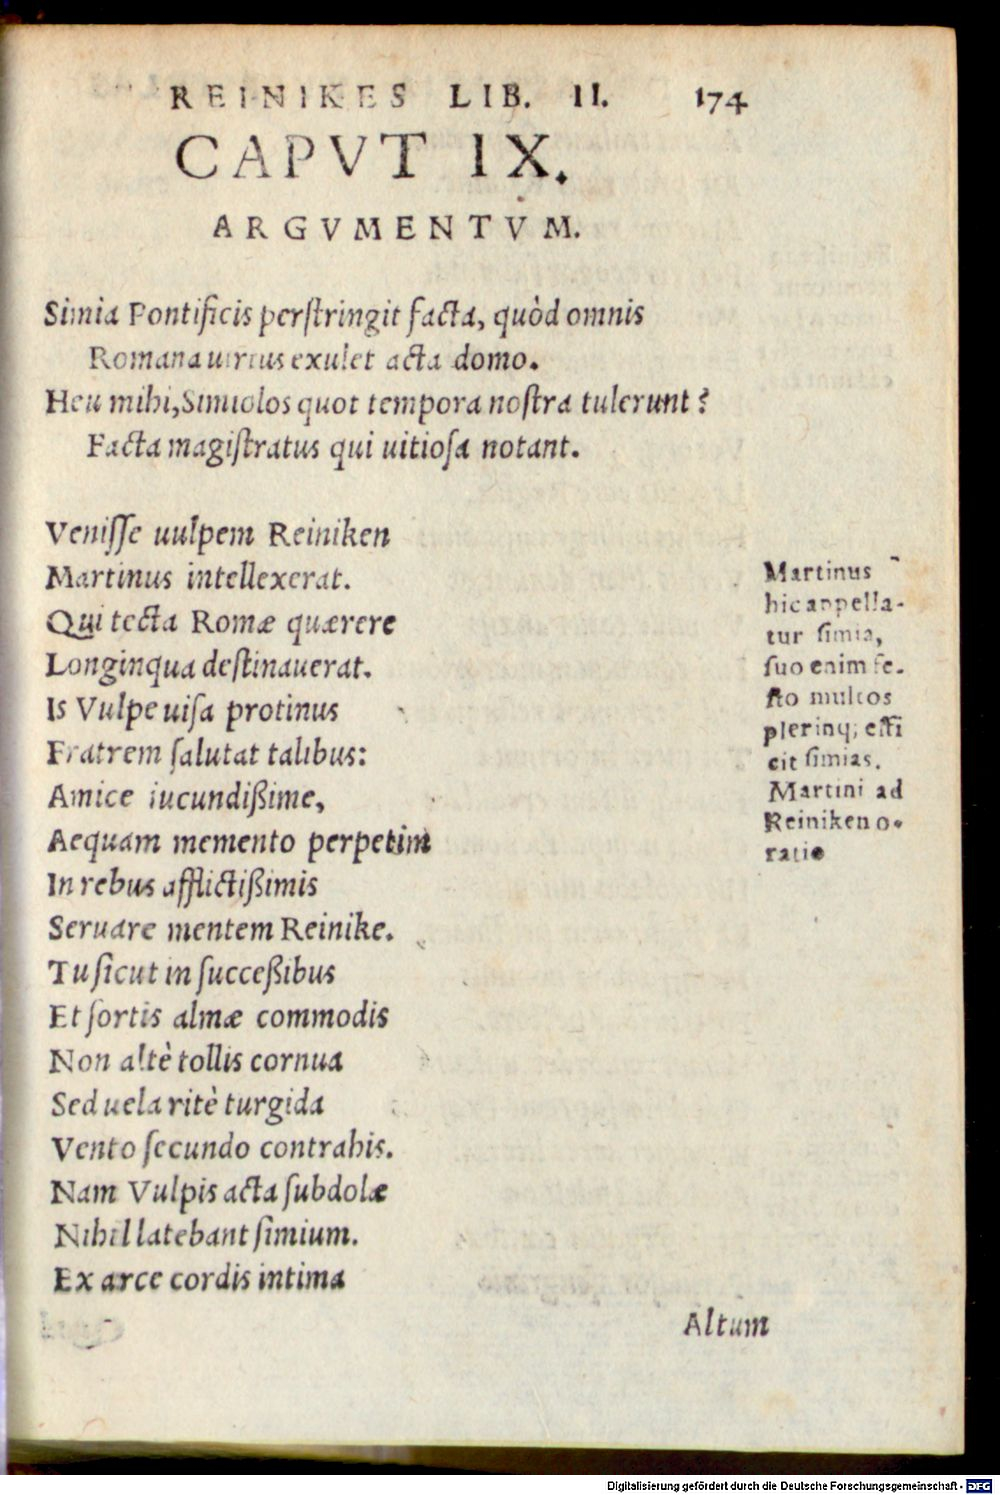 REINIKES LIB. II. 174
CAPVT IX.
ARGVMENTVM.
Simia Pontificis perſtringit facta, quòd omnis
Romana uirtus exulet acta domo.
Heu mihi, Simiolos quot tempora noſtra tulerunt?
Facta magiſtratus qui uitioſa notant.
Veniſſe uulpem Reiniken
Martinus intellexerat.
Qui tecta Romæ quærere
Longinqua deſtinauerat.
Is Vulpe uiſa protinus
Fratrem ſalutat talibus:
Amice iucundißime,
Aequam memento perpetim
In rebus afflictißimis
Seruare mentem Reinike.
Tu ſicut in ſucceßibus
Et ſortis almæ commodis
Non altè tollis cornua
Sed uela ritè turgida
Vento ſecundo contrahis.
Nam Vulpis acta ſubdolæ
Nihil latebant ſimium.
Ex arce cordis intima
Altum
Martinus
hic appella-
tur ſimia,
ſuo enim fe-
ſto multos
plerinq; effi
cit ſimias.
Martini ad
Reiniken o-
ratio
Digitalisierung gefördert durch die Deutsche Forschungsgemeinschaft - DFG